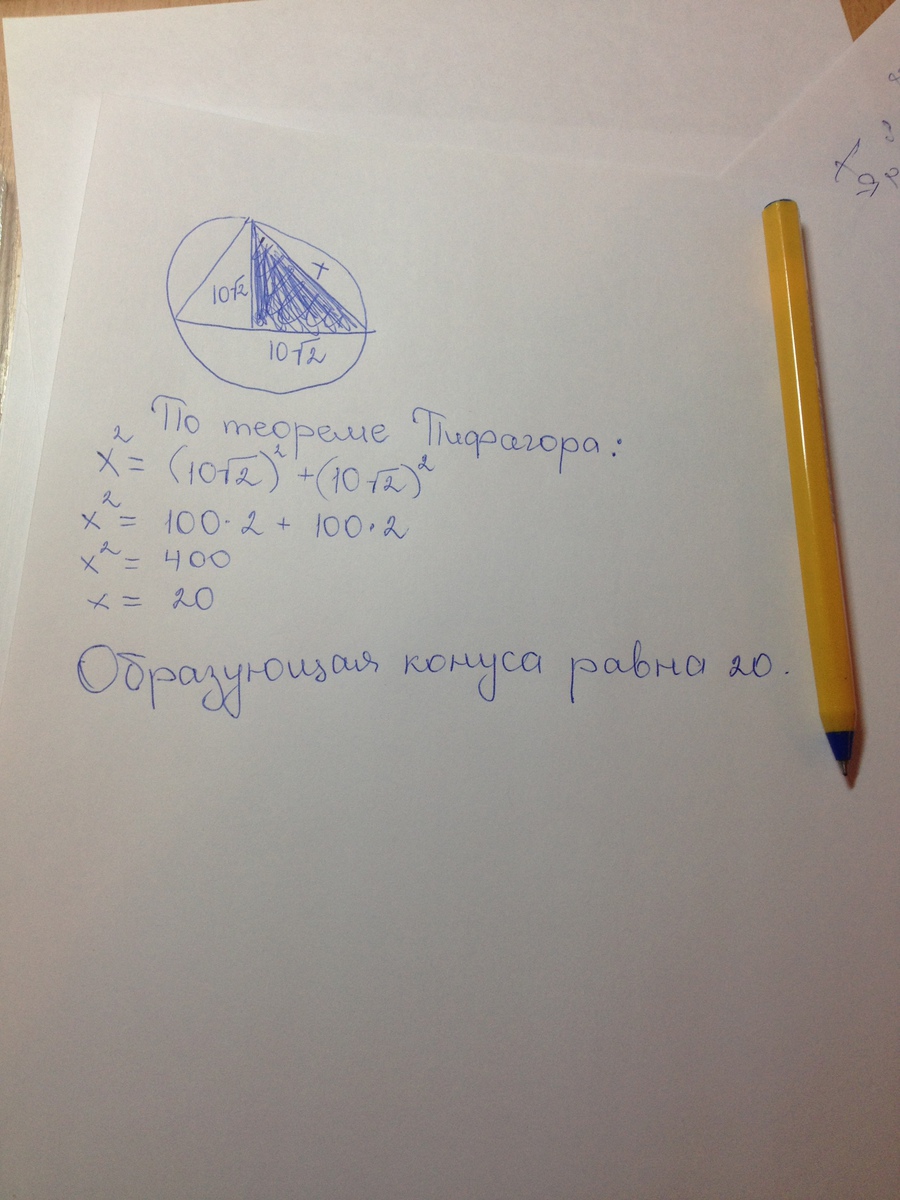 10√2
x
10√2
По теореме Пифагора:
x² = (10√2)² + (10√2)²
x² = 100·2 + 100·2
x² = 400
x = 20
Образующая конуса равна 20.